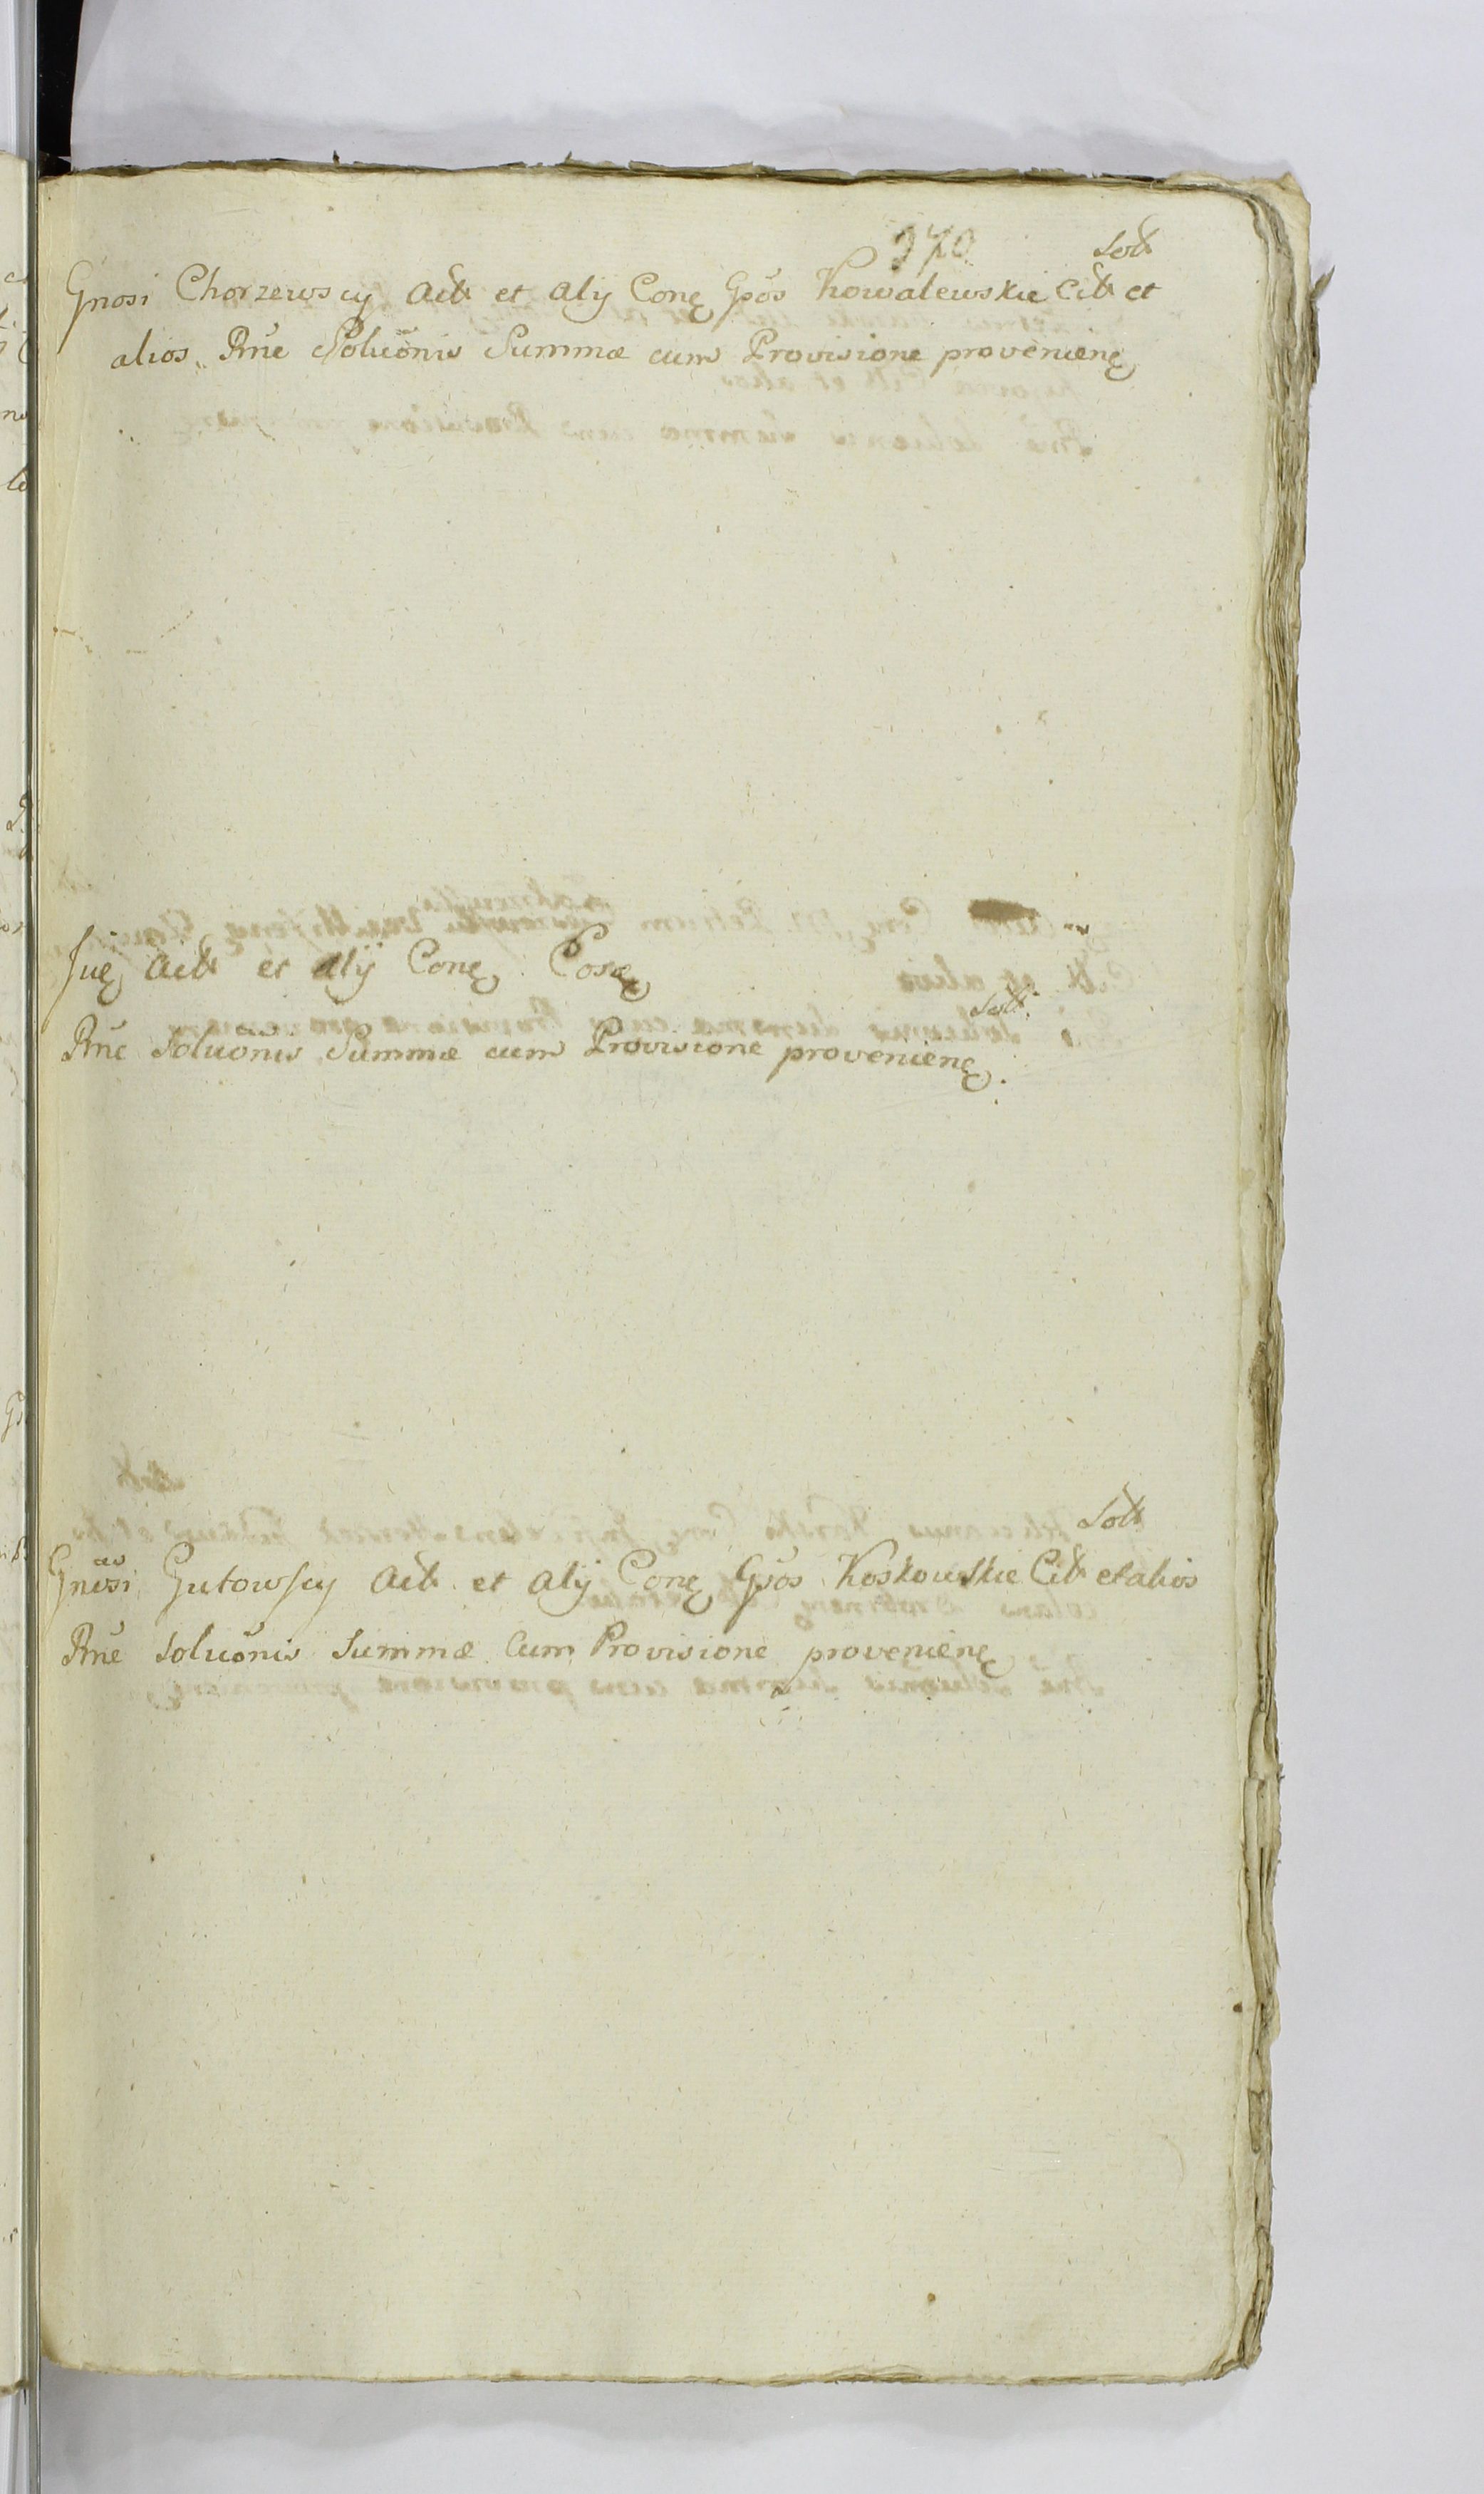 370
Solt
Gnosi Chorzewscy Actt et alij Conę Gsos Kowalewskie Citt et
alios Rne Soluonis Summæ cum Provisione provenienę
Juę Actt et alij Conę Cosdę
Solt.
Rne Soluonis Summæ cum Provisione provenienę.
Solt
Gnosi Gutowscy Actt et alij Conę Gsos Koskowskie Citt et alios
Rne Soluonis Summæ Cum Provisione provenienę